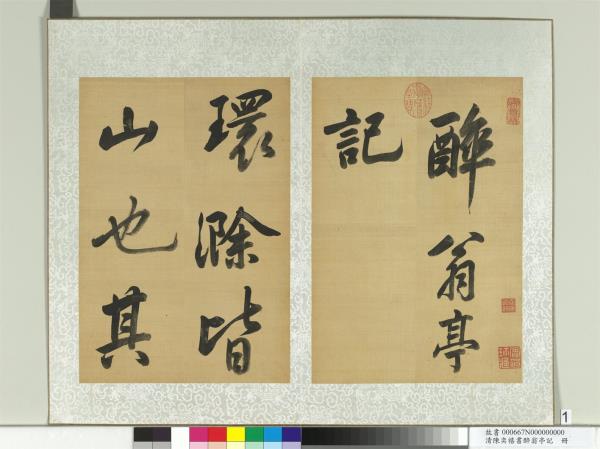 醉翁亭
記
環滁皆
山也其
1
故書 000667N000000000
清陳奕禧書醉翁亭記 冊